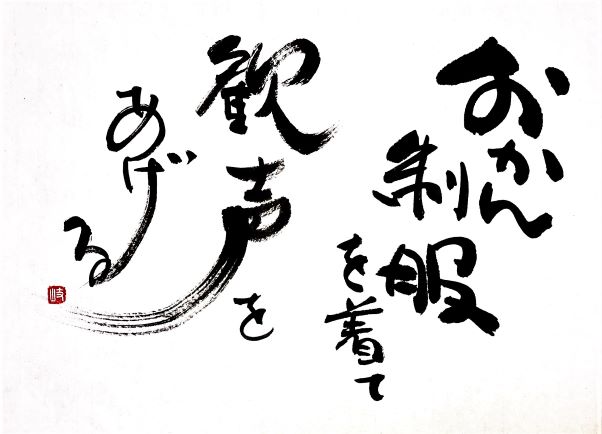 おかん
制服
を着て
歓声を
あげる
岐